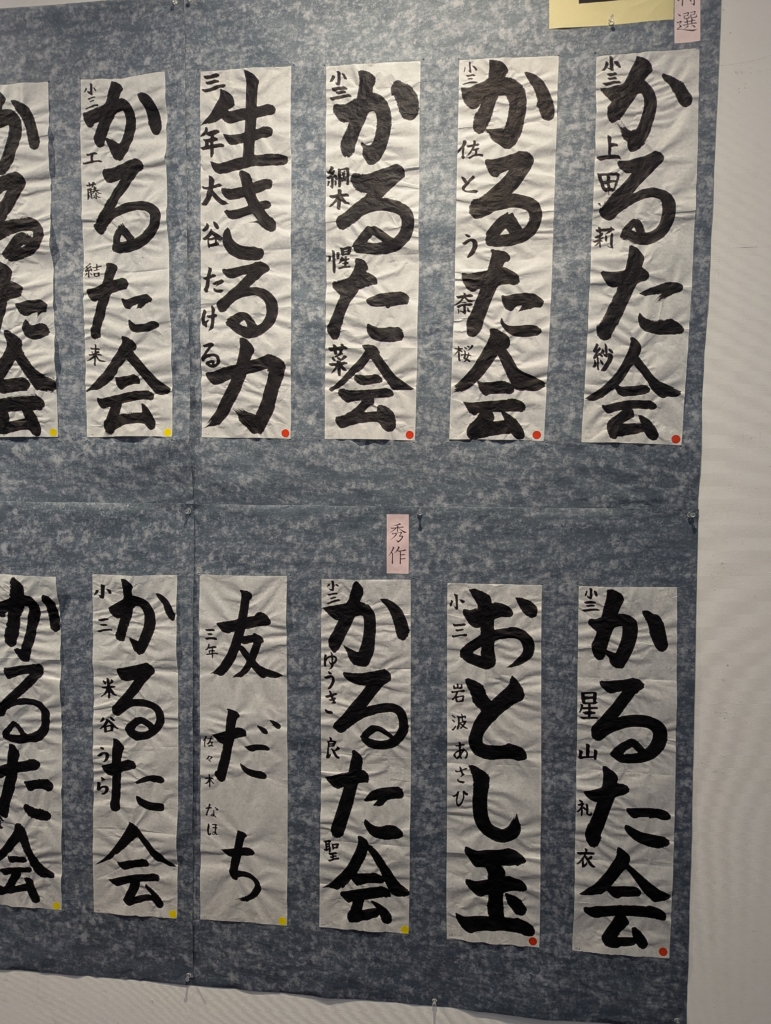 特選
かるた会
小三 上田 莉紗
かるた会
小三 佐とう 奈桜
かるた会
小三 綱木 惺菜
生きる力
三年 大谷 たける
かるた会
小三 工藤 結来
かるた会
かるた会
小三 星山 礼衣
おとし玉
小三 岩波 あさひ
秀作
かるた会
小三 ゆうき 良聖
友だち
三年 佐々木 なほ
かるた会
小三 米谷 うら
かるた会